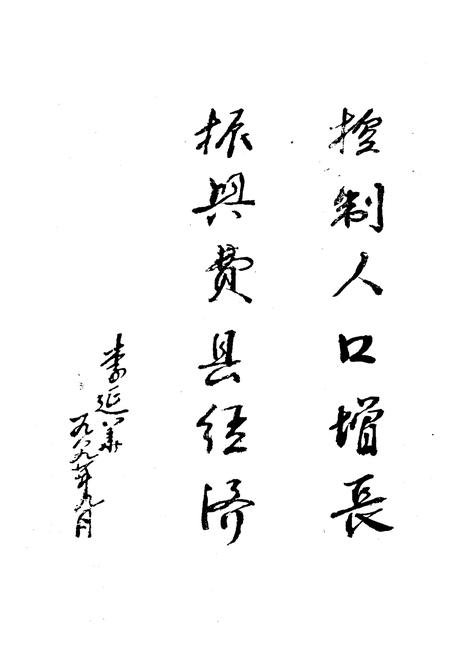 控制人口增長
振興費县经济
李延
一九八九年九月